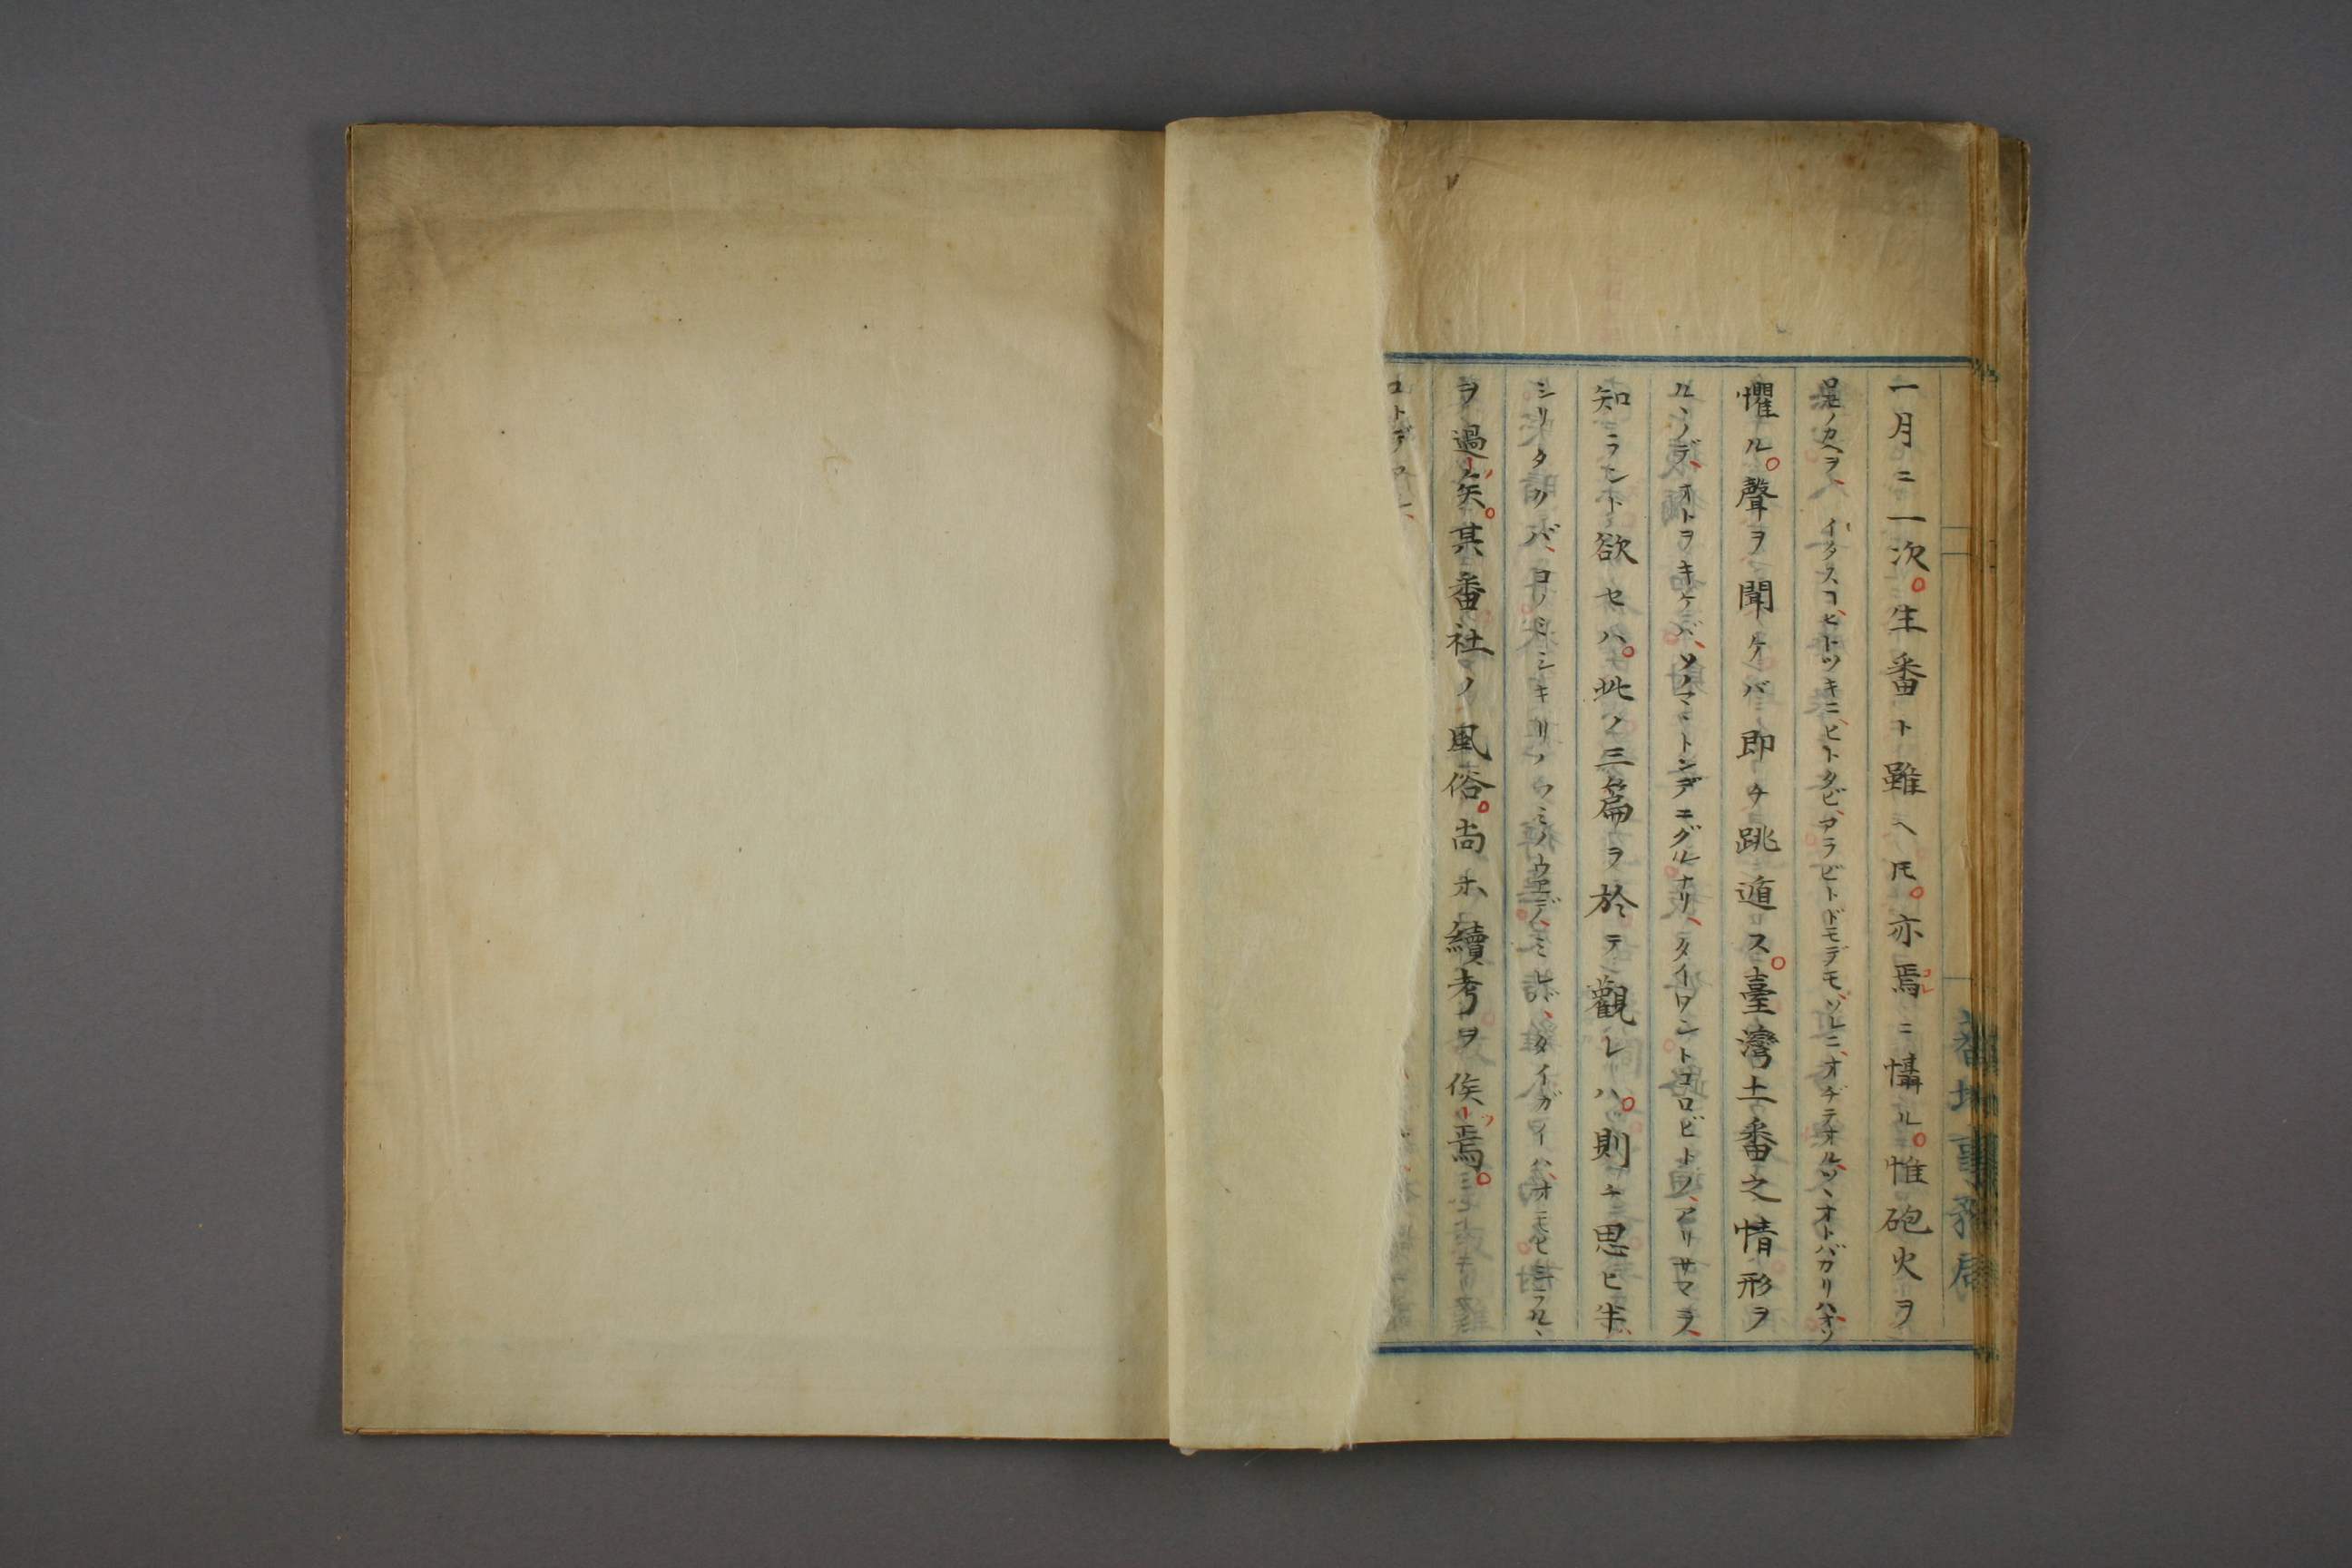 一月ニ一次。生番ト雖ヘ𪜈。亦焉ニ懾ル。惟砲火ヲ
イクスコ、ヒトツキニ、ヒトタビ、アラビトドモデモ、ソレニ、オヂテオル、ツヽオトバカリハ、オソ
懼ル。聲ヲ聞ケバ即チ跳遁ス。臺灣土番之情形ヲ
ルヽノデ、オトヲキケバ、ソノマヽトンデニグルナリ、タイワントコロビトノ、アリサマヲ、
知ラント欲セハ。此ノ三篇ヲ於テ觀レハ。則チ思ヒ半
シリタクバ、コノミシキリノフミノウエデ、ミレバ、タイガイハ、オモヒ
ヲ過ン矣。某番社ノ風俗。尚ホ續考ヲ俟ツ焉。
コトデ
番地事務局